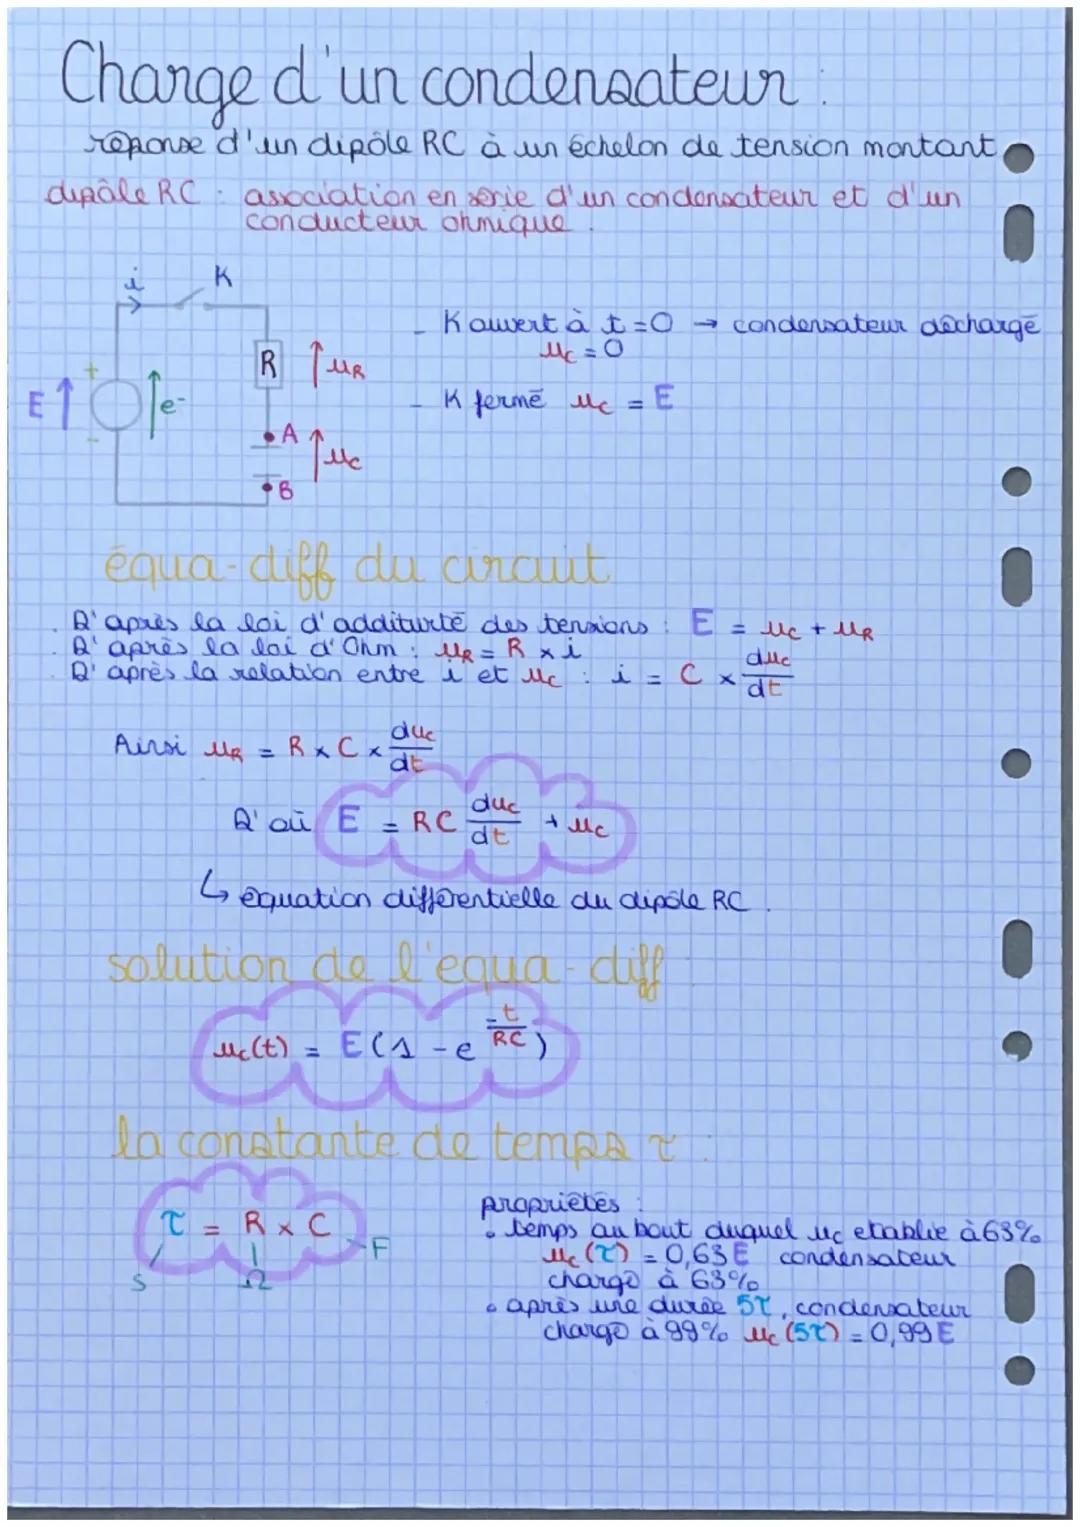 Charge d'un condensateur :
réponse d'un dipôle RC à un échelon de tension montant.
dipôle RC : association en série d'un condensateur et d'un
conducteur ohmique.
i K
- K ouvert à t=0 → condensateur déchargé
uc = 0
R uR
E + e-
- K fermé uc = E
-
A
uc
B
équa-diff du circuit
D'après la loi d'additivité des tensions : E = uc + uR
D'après la loi d'Ohm : uR = R × i
D'après la relation entre i et uc : i = C × duc/dt
Ainsi uR = R × C × duc/dt
D'où E = RC duc/dt + uc
↳ équation différentielle du dipôle RC.
solution de l'équa-diff
uc(t) = E(1 - e^(-t/RC))
la constante de temps τ :
τ = R × C
S Ω F
propriétés :
• temps au bout duquel uc établie à 63%
uc (τ) = 0,63 E condensateur
chargé à 63%
• après une durée 5τ, condensateur
chargé à 99% uc (5τ) = 0,99 E